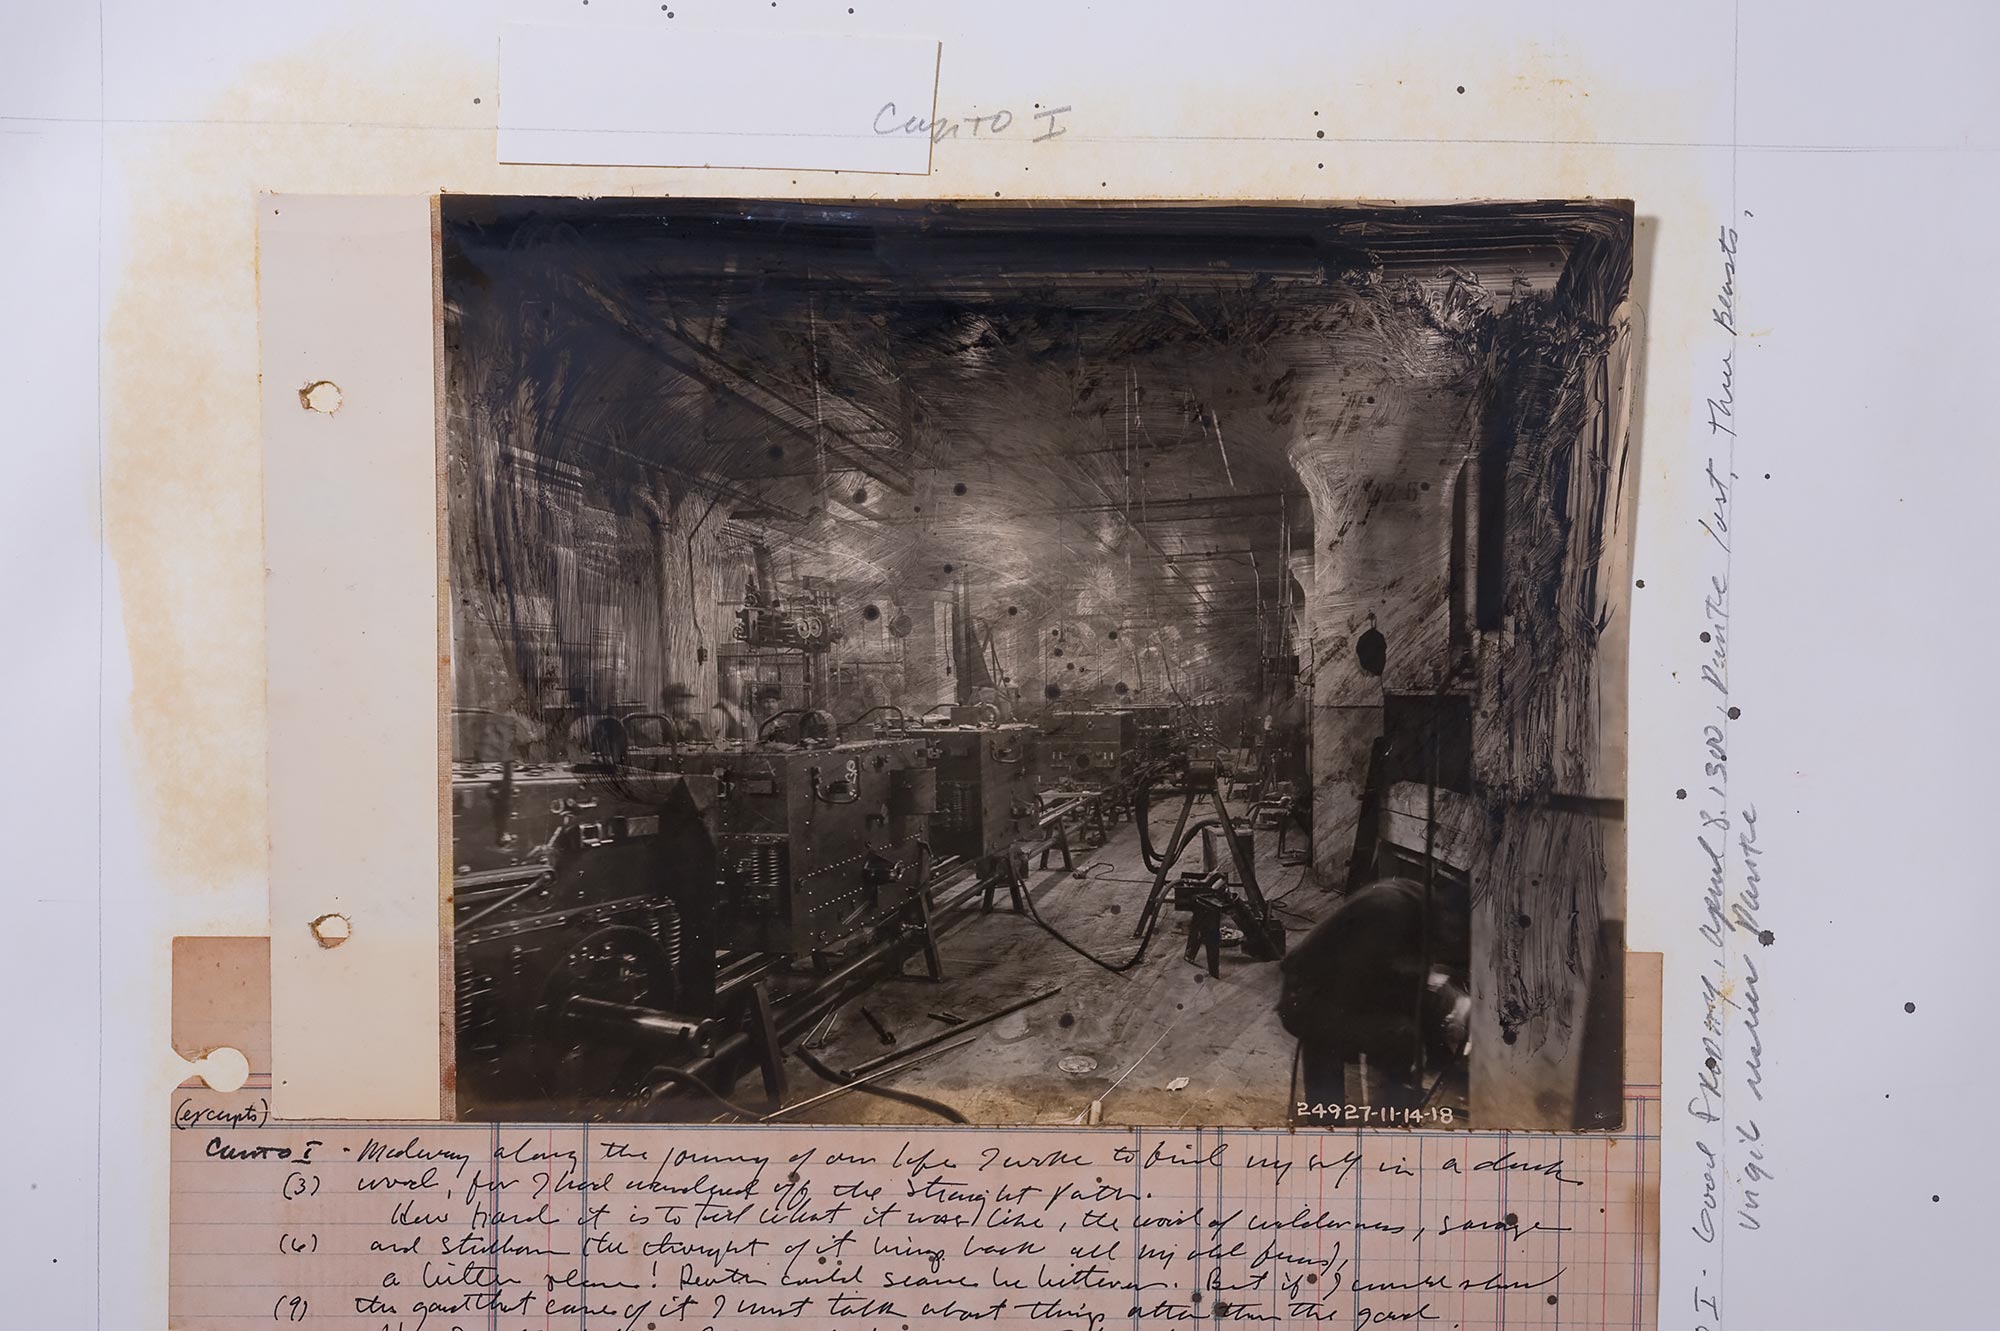 Canto I
24927-11-14-18
(excerpts)
Canto I - Midway along the journey of our life I woke to find myself in a dark
(3) wood, for I had wandered off the straight path.
How hard it is to tell what it was like, the wood of wilderness, savage
(6) and stubborn (the thought of it brings back all my old fears),
a bitter place! Death could scarce be bitterer. But if I would show
(9) the good that came of it I must talk about things other than the good.
I - Good Friday, April 8, 1300, Dante lost, three beasts,
Virgil Dante